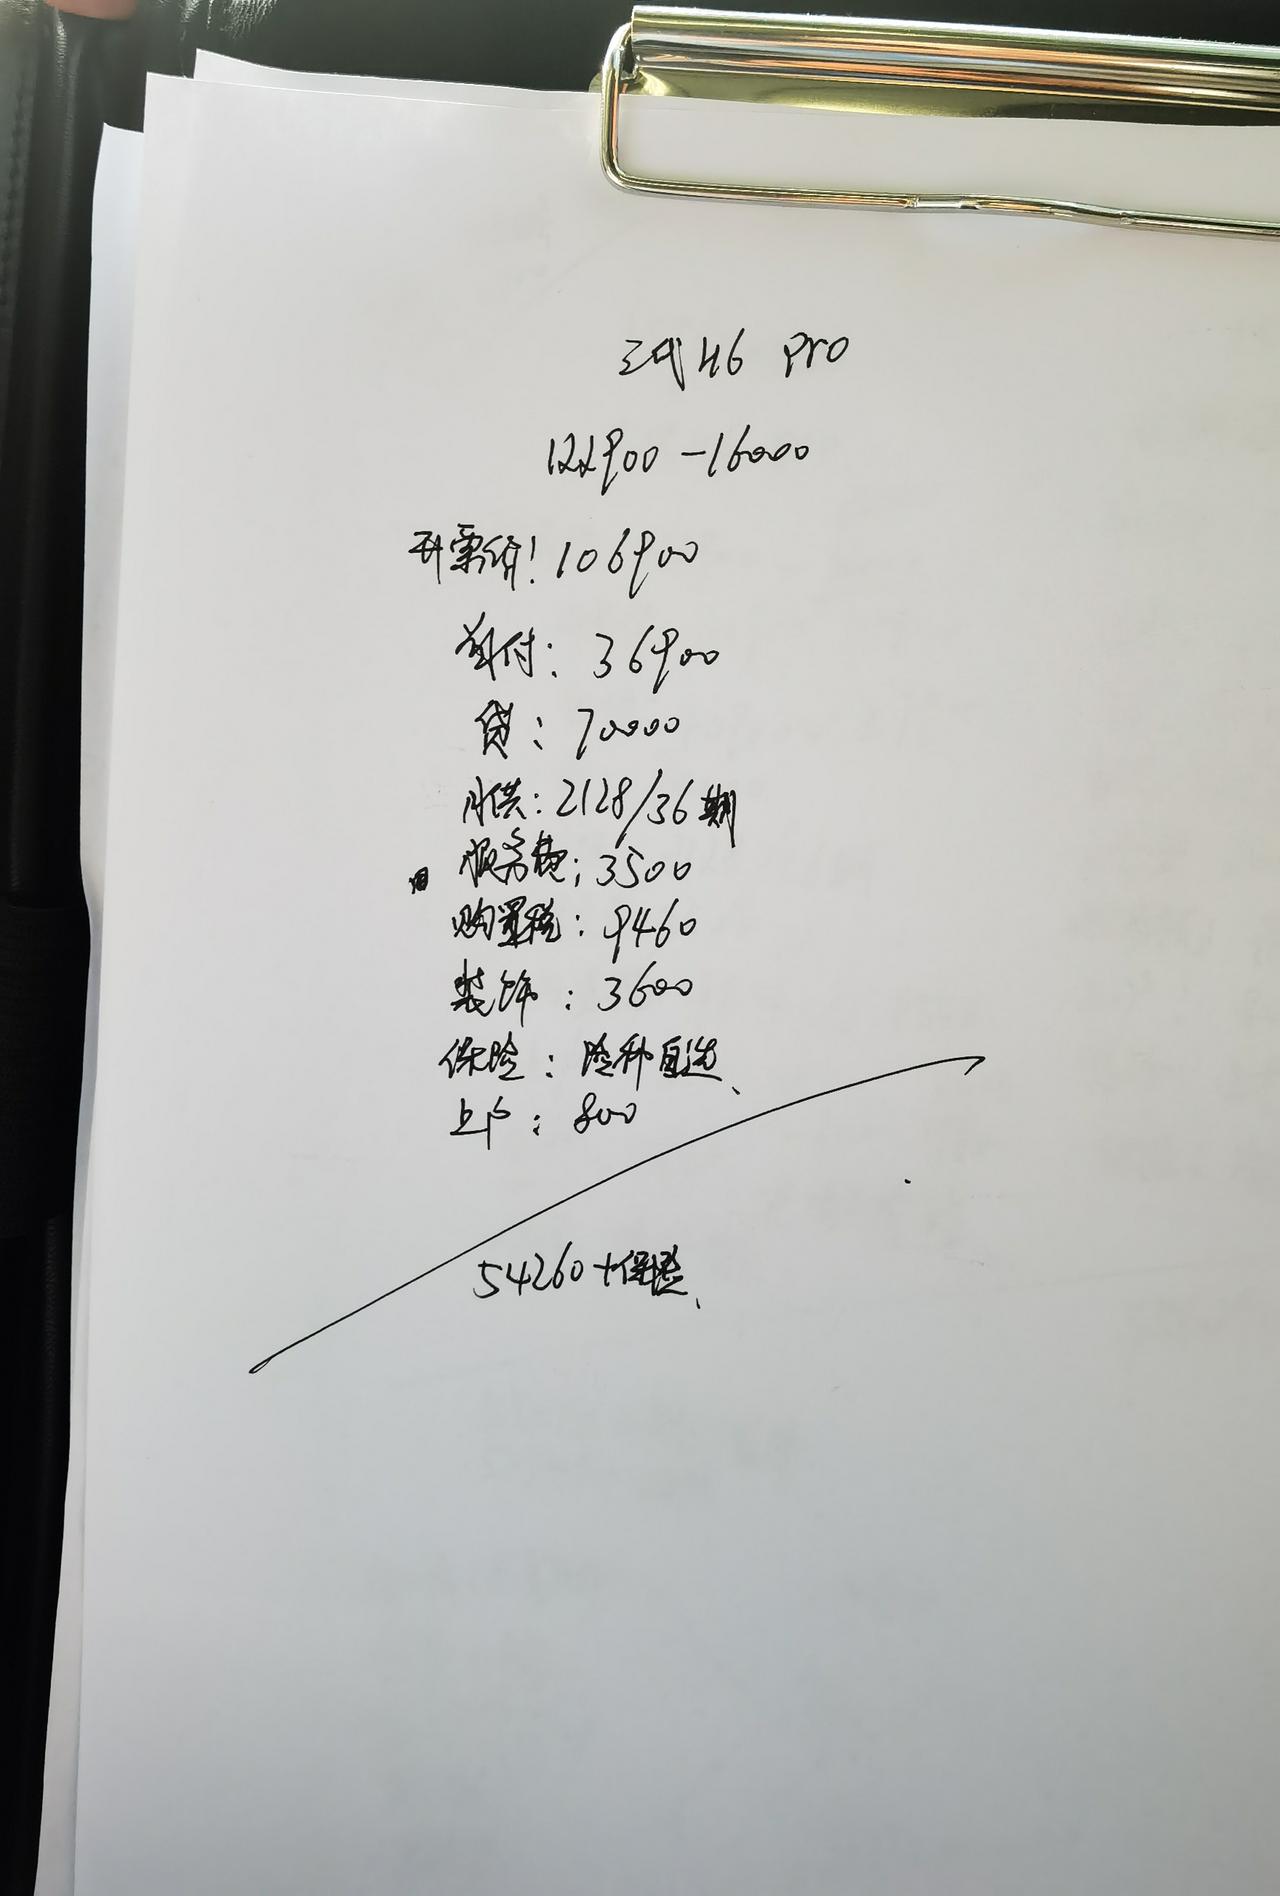 三代H6 Pro
122900-16000
开票价:106900
首付:36900
贷:70000
月供:2128/36期
服务费:3500
购置税:9460
装饰:3600
保险:险种自选、
上户:800
54260+保险、